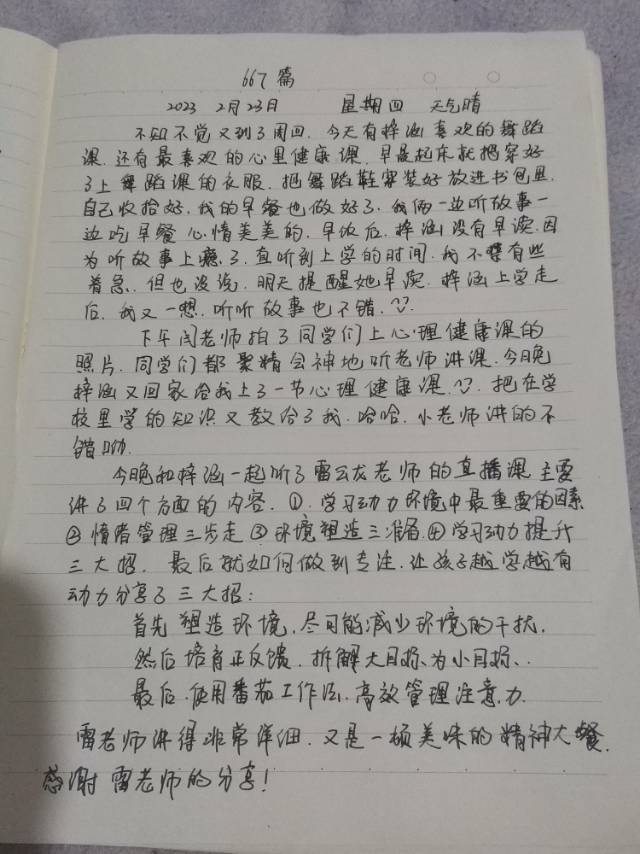 667篇
2023 2月23日 星期四 天气晴
不知不觉又到了周四，今天有梓涵喜欢的舞蹈
课，还有最喜欢的心里健康课，早晨起床就把穿好
了上舞蹈课的衣服，把舞蹈鞋穿装好放进书包里，
自己收拾好，我的早餐也做好了，我俩一边听故事一
边吃早餐心情美美的，早饭后，梓涵没有早读，因
为听故事上瘾了，直听到上学的时间，我不有些
着急，但也没说，明天提醒她早读，梓涵上学走
后，我又一想，听听故事也不错，
下午闫老师拍了同学们上心理健康课的
照片，同学们都聚精会神地听老师讲课，今晚
梓涵又回家给我上了一节心理健康课，把在学
校里学的知识又教给了我，哈哈，小老师讲的不
错呦，
今晚和梓涵一起听了雷云龙老师的直播课，主要
讲了四个方面的内容，①，学习动力环境中最重要的因素
②情绪管理三步走③环境塑造三准备④学习动力提升
三大招，最后就如何做到专注，让孩子越学越有
动力分享了三大招：
首先塑造环境，尽可能减少环境的干扰，
然后培育正反馈，拆解大目标、为小目标、，
最后，使用番茄工作法，高效管理注意力，
雷老师讲得非常详细，又是一顿美味的精神大餐，
感谢雷老师的分享！